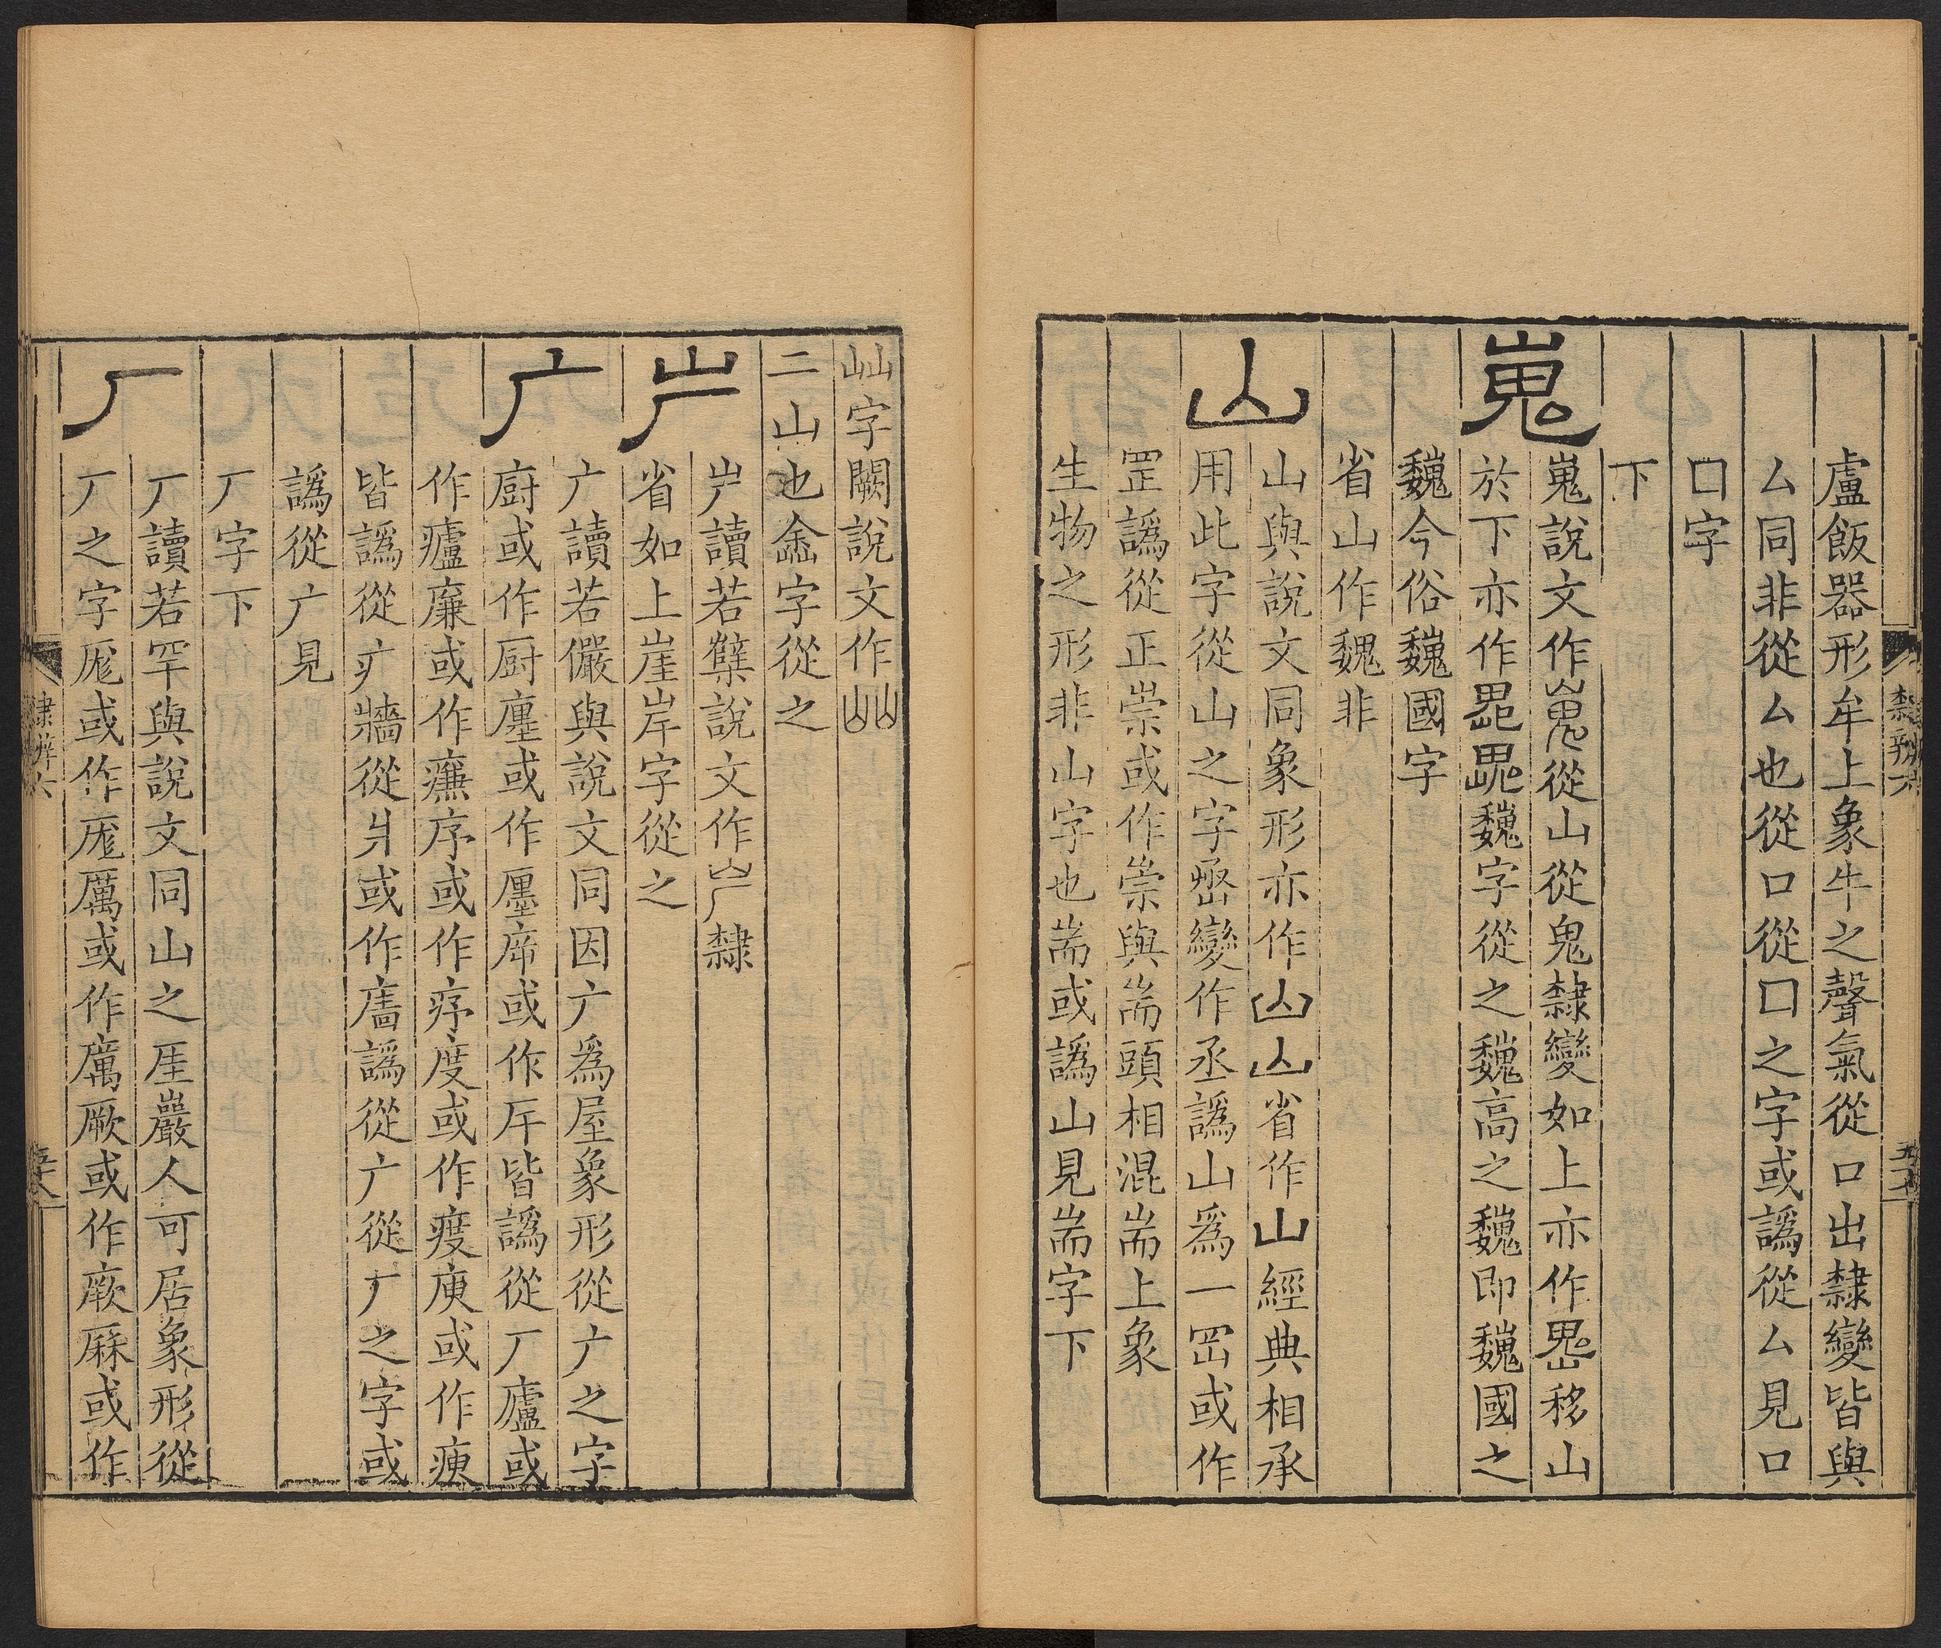 盧飯器形牟上象牛之聲氣從口出隸變皆與
厶同非從厶也從口從囗之字或譌從厶見口
囗字
下
嵬
嵬說文作嵬從山從鬼隸變如上亦作𡾋移山
於下亦作魏字從之魏高之魏即魏國之
魏今俗巍國字
省山作魏非
山
山與說文同象形亦作山山省作山經典相承
用此字從山之字𡵆變作丞譌山爲一𦊆或作
罡譌從正崇或作崈與耑頭相混耑上象
生物之形非山字也耑或譌山見耑字下
屾字闕說文作屾
二山也嵞字從之
屵
屵讀若櫱說文作屵隸
省如上崖岸字從之
广
广讀若儼與說文同因广爲屋象形從广之字
廚或作厨廛或作厘席或作㡿皆譌從厂廬或
作㿖廉或作㾾序或作㾕度或作㾞庚或作㾓
皆譌從疒牆從爿或作廧譌從广從厂之字或
譌從广見
厂字下
厂
厂讀若罕與說文同山之厓巖人可居象形從
厂之字厖或作庬厲或作厲厥或作㾮厤或作
隸辨六
五十八